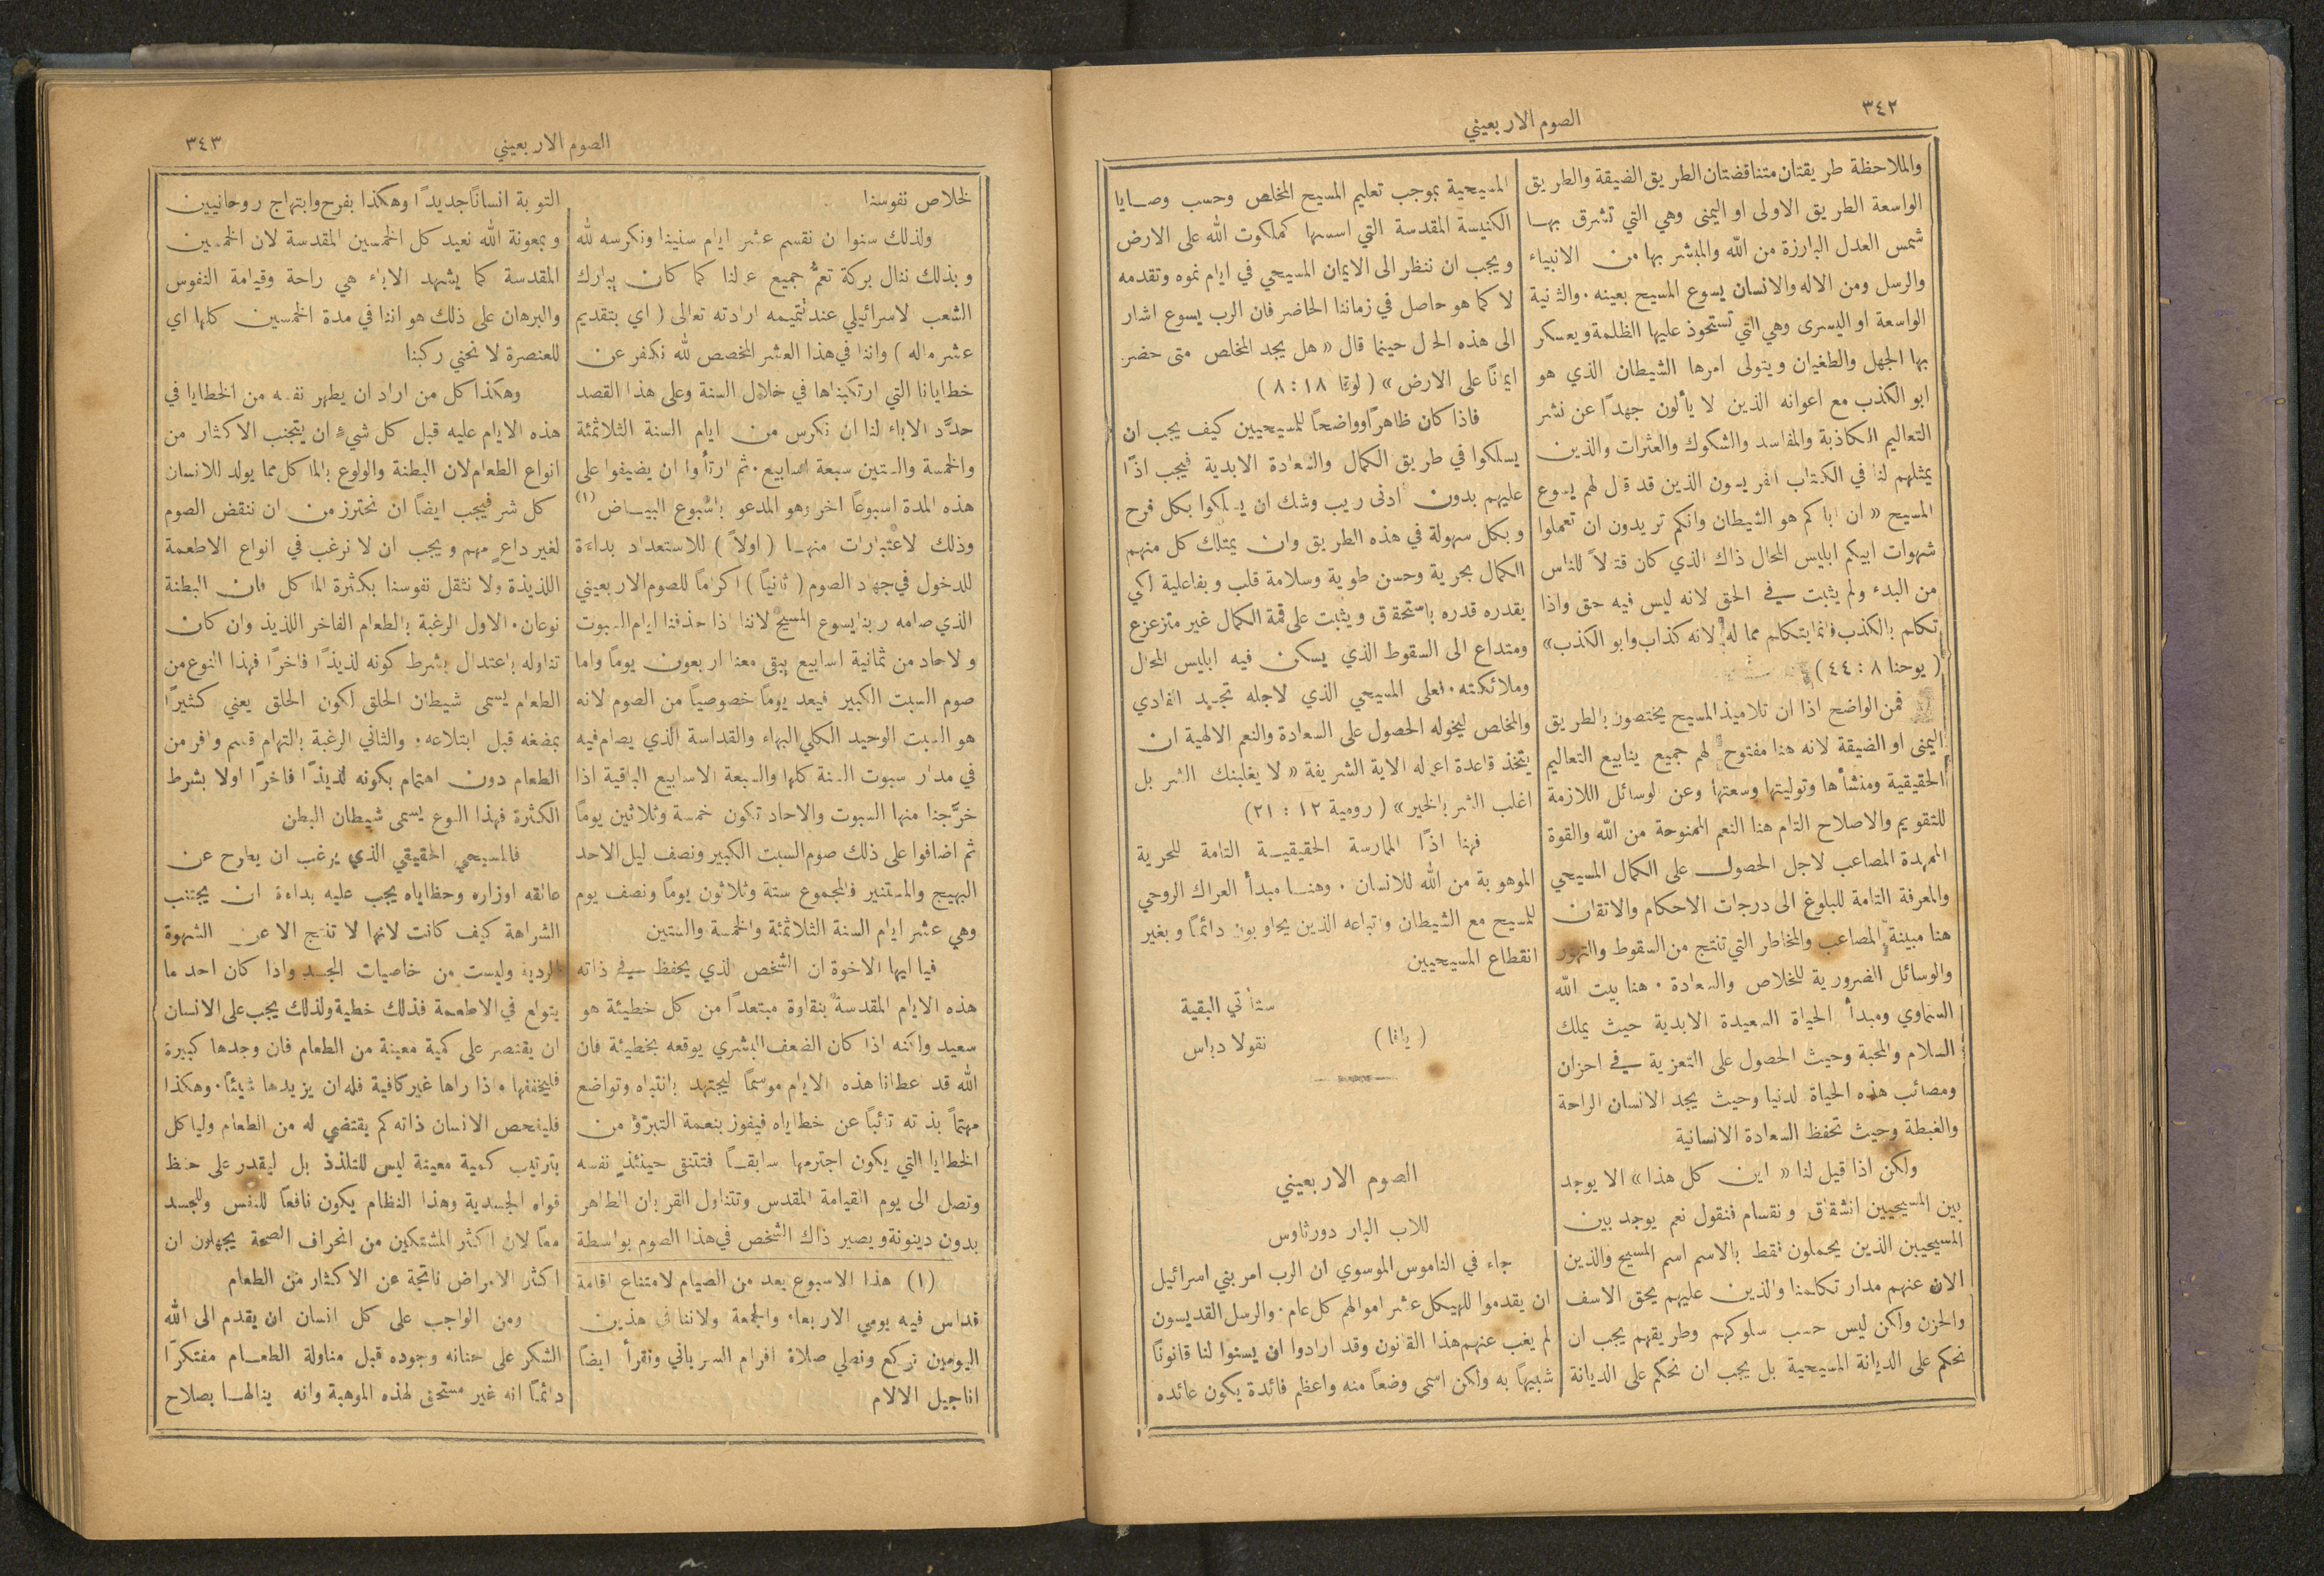 ٣٤٢
الصوم الاربعيني
والملاحظة طريقتان متناقضتان الطريق الضيقة والطريق
الواسعة الطريق الاولى او اليمنى وهي التي تشرق بهـا
شمس العدل البارزة من الله والمبشر بها من الانبياء
والرسل ومن الاله والانسان يسوع المسيح بعينه. والثانية
الواسعة او اليسرى وهي التي تستحوذ عليها الظلمة ويعسكر
بها الجهل والطغيان ويتولى امرها الشيطان الذي هو
ابو الكذب مع اعوانه الذين لا يألون جهدًا عن نشر
التعاليم الكاذبة والمفاسد والشكوك والعثرات والذين
يمثلهم لنا في الكتاب الفريسون الذين قد قال لهم يسوع
المسيح « ان اباكم هو الشيطان وانكم تريدون ان تعملوا
شهوات ابيكم ابليس المحال ذاك الذي كان قتالاً للناس
من البدء ولم يثبت في الحق لانه ليس فيه حق واذا
تكلم بالكذب فانما يتكلم مما له لانه كذاب وابو الكذب»
( يوحنا ٨ : ٤٤ )
فمن الواضح اذا ان تلاميذ المسيح يختصون بالطريق
اليمنى او الضيقة لانه هنا مفتوح لهم جميع ينابيع التعاليم
الحقيقية ومنشأها وتوليتها وسعتها وعن لوسائل اللازمة
للتقويم والاصلاح التام هنا النعم الممنوحة من الله والقوة
الممهدة المصاعب لاجل الحصول على الكمال المسيحي
والمعرفة التامة للبلوغ الى درجات الاحكام والاتقان
هنا مبينة المصاعب والمخاطر التي تنتج من السقوط والتهور
والوسائل الضرورية للخلاص والسعادة . هنا بيت الله
السماوي ومبدأ الحياة السعيدة الابدية حيث يملك
السلام والمحبة وحيث الحصول على التعزية في احزان
ومصائب هذه الحياة الدنيا وحيث يجد الانسان الراحة
والغبطة وحيث تحفظ السعادة الانسانية
ولكن اذا قيل لنا « اين كل هذا » الا يوجد
بين المسيحيين انشقاق وانقسام فنقول نعم يوجد بين
المسيحيين الذين يحملون فقط بالاسم اسم المسيح والذين
الان عنهم مدار تكلمنا والذين عليهم يحق الاسف
والحزن ولكن ليس حسب سلوكهم وطريقهم يجب ان
نحكم على الديانة المسيحية بل يجب ان نحكم على الديانة
المسيحية بموجب تعليم المسيح المخلص وحسب وصـايا
الكنيسة المقدسة التي اسسها كملكوت الله على الارض
ويجب ان ننظر الى الايمان المسيحي في ايام نموه وتقدمه
لا كما هو حاصل في زماننا الحاضر فان الرب يسوع اشار
الى هذه الحال حينما قال « هل يجد المخلص متى حضر
ايمانًا على الارض » ( لوقا ١٨ : ٨ )
فاذا كان ظاهرًا وواضحًا للمسيحيين كيف يجب ان
يسلكوا في طريق الكمال والسعادة الابدية فيجب اذًا
عليهم بدون ادنى ريب وشك ان يسلكوا بكل فرح
وبكل سهولة في هذه الطريق وان يمتلك كل منهم
الكمال بحرية وحسن طوية وسلامة قلب وبفاعلية لكي
يقدره قدره باستحقاق ويثبت على قمة الكمال غير متزعزع
ومتداع الى السقوط الذي يسكن فيه ابليس المحال
وملائكته. فعلى المسيحي الذي لاجله تجسد الفادي
والمخلص ليخوله الحصول على السعادة والنعم الالهية ان
يتخذ قاعدة اعماله الاية الشريفة « لا يغلبنك الشر بل
اغلب الشر بالخير» ( رومية ١٢ : ٢١ )
فهنا اذًا الممارسة الحقيقيـة التامة للحرية
الموهوبة من الله للانسان . وهنـا مبدأ العراك الروحي
للمسيح مع الشيطان واتباعه الذين يحاوبون دائمًا وبغير
انقطاع المسيحيين
ستأتي البقية
( يافا ) نقولا دباس
الصوم الاربعيني
للاب البار دورثاوس
جاء في الناموس الموسوي ان الرب امر بني اسرائيل
ان يقدموا للهيكل عشر اموالهم كل عام. والرسل القديسون
لم يغب عنهم هذا القانون وقد ارادوا ان يسنوا لنا قانونًا
شبيهًا به ولكن اسمى وضعًا منه واعظم فائدة يكون عائده
الصوم الاربعيني
٣٤٣
لخلاص نفوسنا
ولذلك سنوا ان نقسم عشر ايام سنينا ونكرسه لله
وبذلك ننال بركة تعمُّ جميع عملنا كما كان يبارك
الشعب الاسرائيلي عند تتميمه ارادته تعالى ( اي بتقديم
عشر ماله ) واننا في هذا العشر المخصص لله نكفر عن
خطايانا التي ارتكبناها في خلال السنة وعلى هذا القصد
حدَّد الاباء لنا ان نكرس من ايام السنة الثلاثمئة
والخمسة والستين سبعة اسابيع. ثم ارتأوا ان يضيفوا على
هذه المدة اسبوعًا اخر وهو المدعو باسبوع البيـاض (١)
وذلك لاعتبارات منهـا ( اولاً ) للاستعداد بداءة
للدخول في جهاد الصوم ( ثانيًا ) اكرامًا للصوم الاربعيني
الذي صامه ربنا يسوع المسيح لاننا اذا حذفنا ايام السبوت
والاحاد من ثمانية اسابيع يبقى معنا اربعون يومًا واما
صوم السبت الكبير فيعد يومًا خصوصيًا من الصوم لانه
هو السبت الوحيد الكلي البهاء والقداسة الذي يصام فيه
في مدار سبوت السنة كلها والسبعة الاسابيع الباقية اذا
خرَّجنا منها السبوت والاحاد تكون خمسة وثلاثين يومًا
ثم اضافوا على ذلك صوم السبت الكبير ونصف ليل الاحد
البهيج والمستنير فالمجموع ستة وثلاثون يومًا ونصف يوم
وهي عشر ايام السنة الثلاثمئة والخمسة والستين
فيا ايها الاخوة ان الشخص الذي يحفظ في ذاته
هذه الايام المقدسة بنقاوة مبتعدًا من كل خطيئة هو
سعيد ولكنه اذا كان الضعف البشري يوقعه بخطيئة فان
الله قد اعطانا هذه الايام موسمًا ليجتهد بانتباه وتواضع
مهتمًا بذاته تائبًا عن خطاياه فيفوز بنعمة التبرؤ من
الخطايا التي يكون اجترمها سابقـًا فتتنقى حينئذٍ نفسه
وتصل الى يوم القيامة المقدس وتتناول القربان الطاهر
بدون دينونة ويصير ذاك الشخص في هذا الصوم بواسطة
(١) هذا الاسبوع يعد من الصيام لامتناع اقامة
قداس فيه يومي الاربعاء والجمعة ولاننا في هذين
اليومين نركع ونصلي صلاة افرام السرياني ونقرأ ايضًا
اناجيل الالام
التوبة انسانًا جديدًا وهكذا بفرح وابتهاج روحانيين
وبمعونة الله نعيد كل الخمسين المقدسة لان الخمسين
المقدسة كما يشهد الاباء هي راحة وقيامة النفوس
والبرهان على ذلك هو اننا في مدة الخمسين كلها اي
للعنصرة لا نحني ركبنا
وهكذا كل من اراد ان يطهر نفسه من الخطايا في
هذه الايام عليه قبل كل شيءٍ ان يتجنب الاكثار من
انواع الطعام لان البطنة والولوع بالمآكل مما يولد للانسان
كل شر فيجب ايضًا ان نحترز من ان ننقض الصوم
لغير داعٍ مهم ويجب ان لا نرغب في انواع الاطعمة
اللذيذة ولا نثقل نفوسنا بكثرة المآكل فان البطنة
نوعان. الاول الرغبة بالطعام الفاخر اللذيذ وان كان
تناوله باعتدال بشرط كونه لذيذًا فاخرًا فهذا النوع من
الطعام يسمى شيطان الحلق لكون الحلق يعني كثيرًا
بمضغه قبل ابتلاعه. والثاني الرغبة بالتهام قسم وافر من
الطعام دون اهتمام بكونه لذيذًا فاخرًا اولا بشرط
الكثرة فهذا النوع يسمى شيطان البطن
فالمسيحي الحقيقي الذي يرغب ان يطرح عن
عاتقه اوزاره وخطاياه يجب عليه بداءة ان يجتنب
الشراهة كيف كانت لانها لا تنتج الا عن الشهوة
الردية وليست من خاصيات الجسد واذا كان احد ما
يتولع في الاطعمة فذلك خطية ولذلك يجب على الانسان
ان يقتصر على كمية معينة من الطعام فان وجدها كبيرة
فليخففها واذا راها غير كافية فله ان يزيدها شيئًا. وهكذا
فليفحص الانسان ذاته كم يقتضي له من الطعام ولياكل
بترتيب كمية معينة ليس للتلذذ بل ليقدر على حفظ
قواه الجسدية وهذا النظام يكون نافعًا للنفس وللجسد
معًا لان اكثر المشتكين من انحراف الصحة يجهلون ان
اكثر الامراض ناتجة عن الاكثار من الطعام
ومن الواجب على كل انسان ان يقدم الى الله
الشكر على حنانه وجوده قبل مناولة الطعـام مفتكرًا
دائمًا انه غير مستحق لهذه الموهبة وانه ينالهـا بصلاح